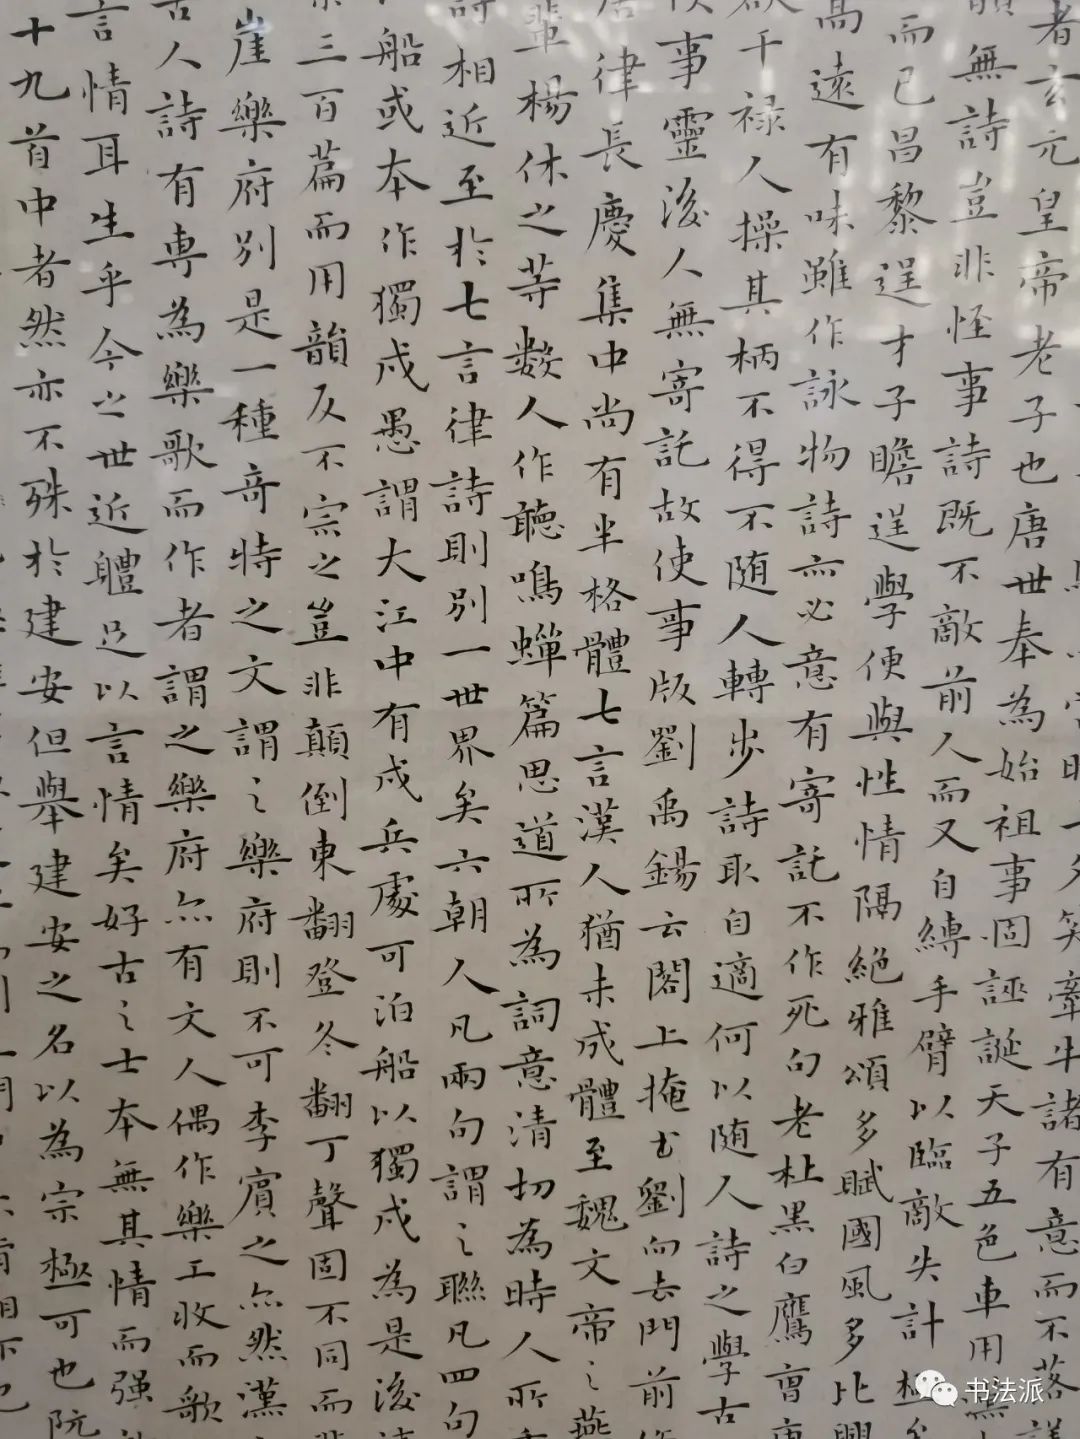 者玄元皇帝老子也唐世奉為始祖事固誣誕天子五色車用
無詩豈非怪事詩既不敵前人而又自縛手臂以臨敵失計
而已昌黎逞才子瞻逞學便與性情隔絕雅頌多賦國風多比興
高遠有味雖作詠物詩亦必意有寄託不作死句老杜黑白鷹曹唐
干祿人操其柄不得不随人轉步詩取自適何以随人詩之學古
事靈後人無寄託故使事版劉禹錫云閣上掩書劉向去門前
律長慶集中尚有半格體七言漢人猶未成體至魏文帝之燕
輩楊休之等數人作聽鳴蟬篇思道所為詞意清切為時人所
詩相近至於七言律詩則別一世界矣六朝人凡兩句謂之聯凡四句
船或本作獨戍愚謂大江中有戍兵處可泊船以獨戍為是後
三百篇而用韻反不宗之豈非顛倒東翻登冬翻丁聲固不同而
崖樂府別是一種奇特之文謂之樂府則不可李賓之亦然漢
古人詩有專為樂歌而作者謂之樂府亦有文人偶作樂工收而歌
言情耳生乎今之世近體足以言情矣好古之士本無其情而强
十九首中者然亦不殊於建安但舉建安之名以為宗極可也阮
书法派